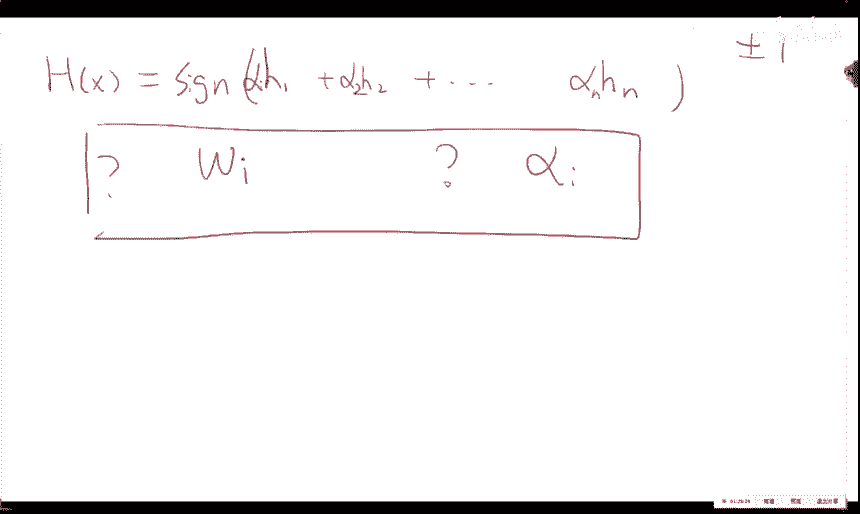 ± 1
H(x) = sign (α₁h₁ + α₂h₂ + ... αₙhₙ )
? Wᵢ ? αᵢ